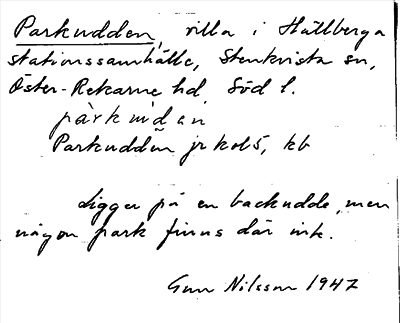 Parkudden, villa i Hällberga
stationssamhälle, Stenkvista sn,
Öster-Rekarne hd, Söd l.
parkudan
Parkudden jrkol5, kb
Ligger på en backudde, men
någon park finns där inte.
Gun Nilsson 1947